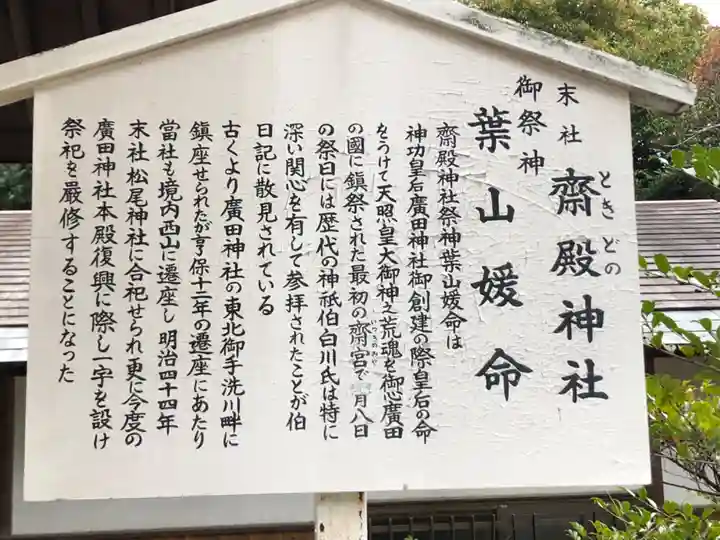 末社 齋殿神社
ときどの
御祭神
葉山媛命
齋殿神社祭神葉山媛命は
神功皇后廣田神社御創建の際皇后の命
をうけて天照皇大御神之荒魂を御心廣田
の國に鎮祭された最初の齋宮で 月八日
いつきのみや
の祭日には歴代の神祇伯白川氏は特に
深い関心を有して参拝されたことが伯
日記に散見されている
古くより廣田神社の東北御手洗川畔に
鎮座せられたが亨保十二年の遷座にあたり
當社も境内西山に遷座し明治四十四年
末社松尾神社に合祀せられ更に今度の
廣田神社本殿復興に際し一宇を設け
祭祀を厳修することになった